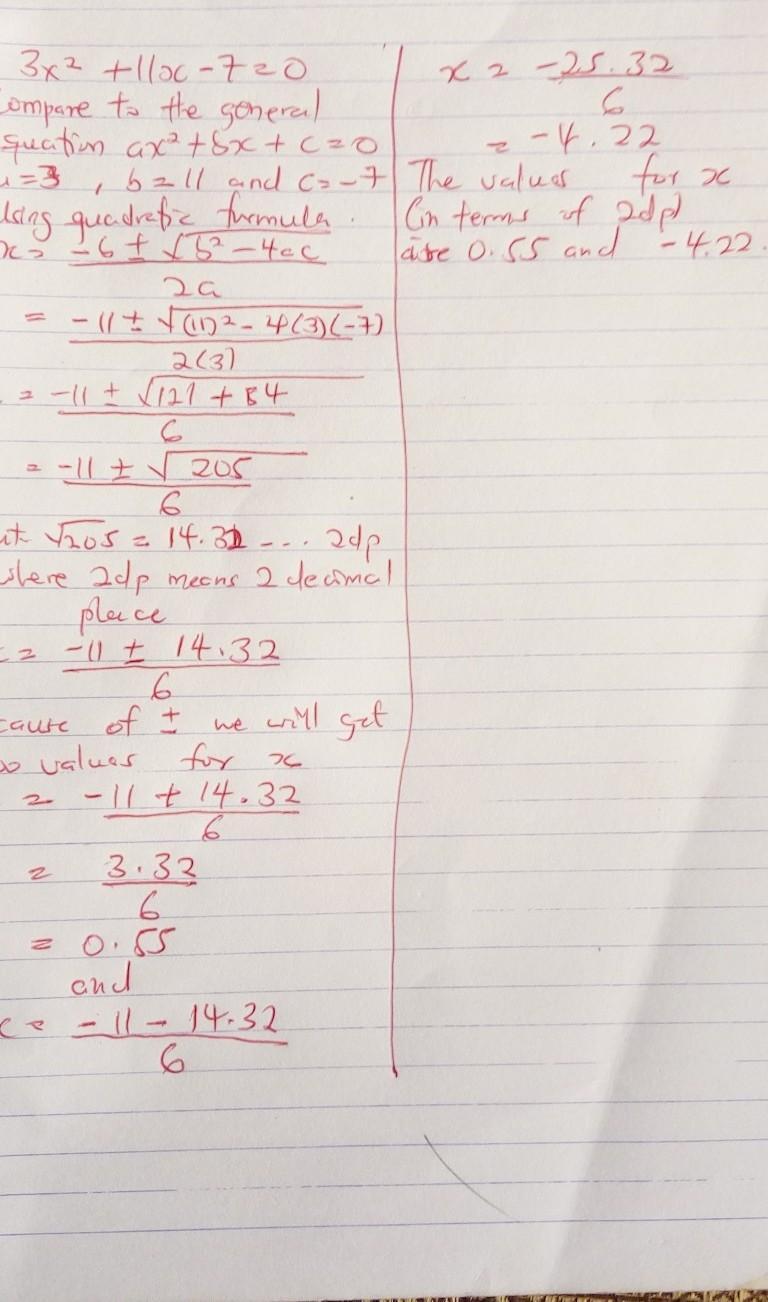 3x² + 11x - 7 = 0
ompare to the general
equation ax² + bx + c = 0
a = 3 , b = 11 and c = -7
Using quadratic formula.
x = -b ± √b² - 4ac
2a
= -11 ± √(11)² - 4(3)(-7)
2(3)
= -11 ± √121 + 84
6
= -11 ± √205
6
ut √205 = 14.32 --- 2dp
where 2dp means 2 decimal
place
= -11 ± 14.32
6
cause of ± we will get
o values for x
= -11 + 14.32
6
= 3.32
6
= 0.55
and
x = -11 - 14.32
6
x = -25.32
6
= -4.22
The values for x
(in terms of 2dp)
are 0.55 and -4.22.